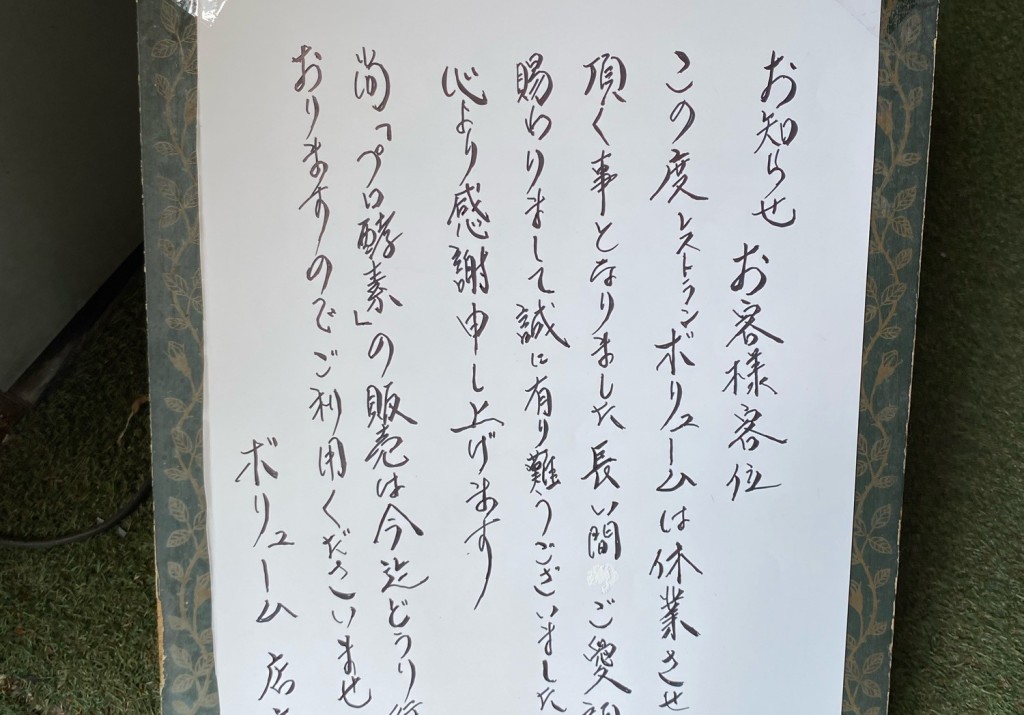 お知らせ
お客様客位
この度レストランボリュームは休業させ
頂く事となりました長い間ご愛顧
賜わりまして誠に有り難うございました
心より感謝申し上げます
尚「ペロ酵素」の販売は今迄どうり
おりますのでご利用くださいませ
ボリューム 店